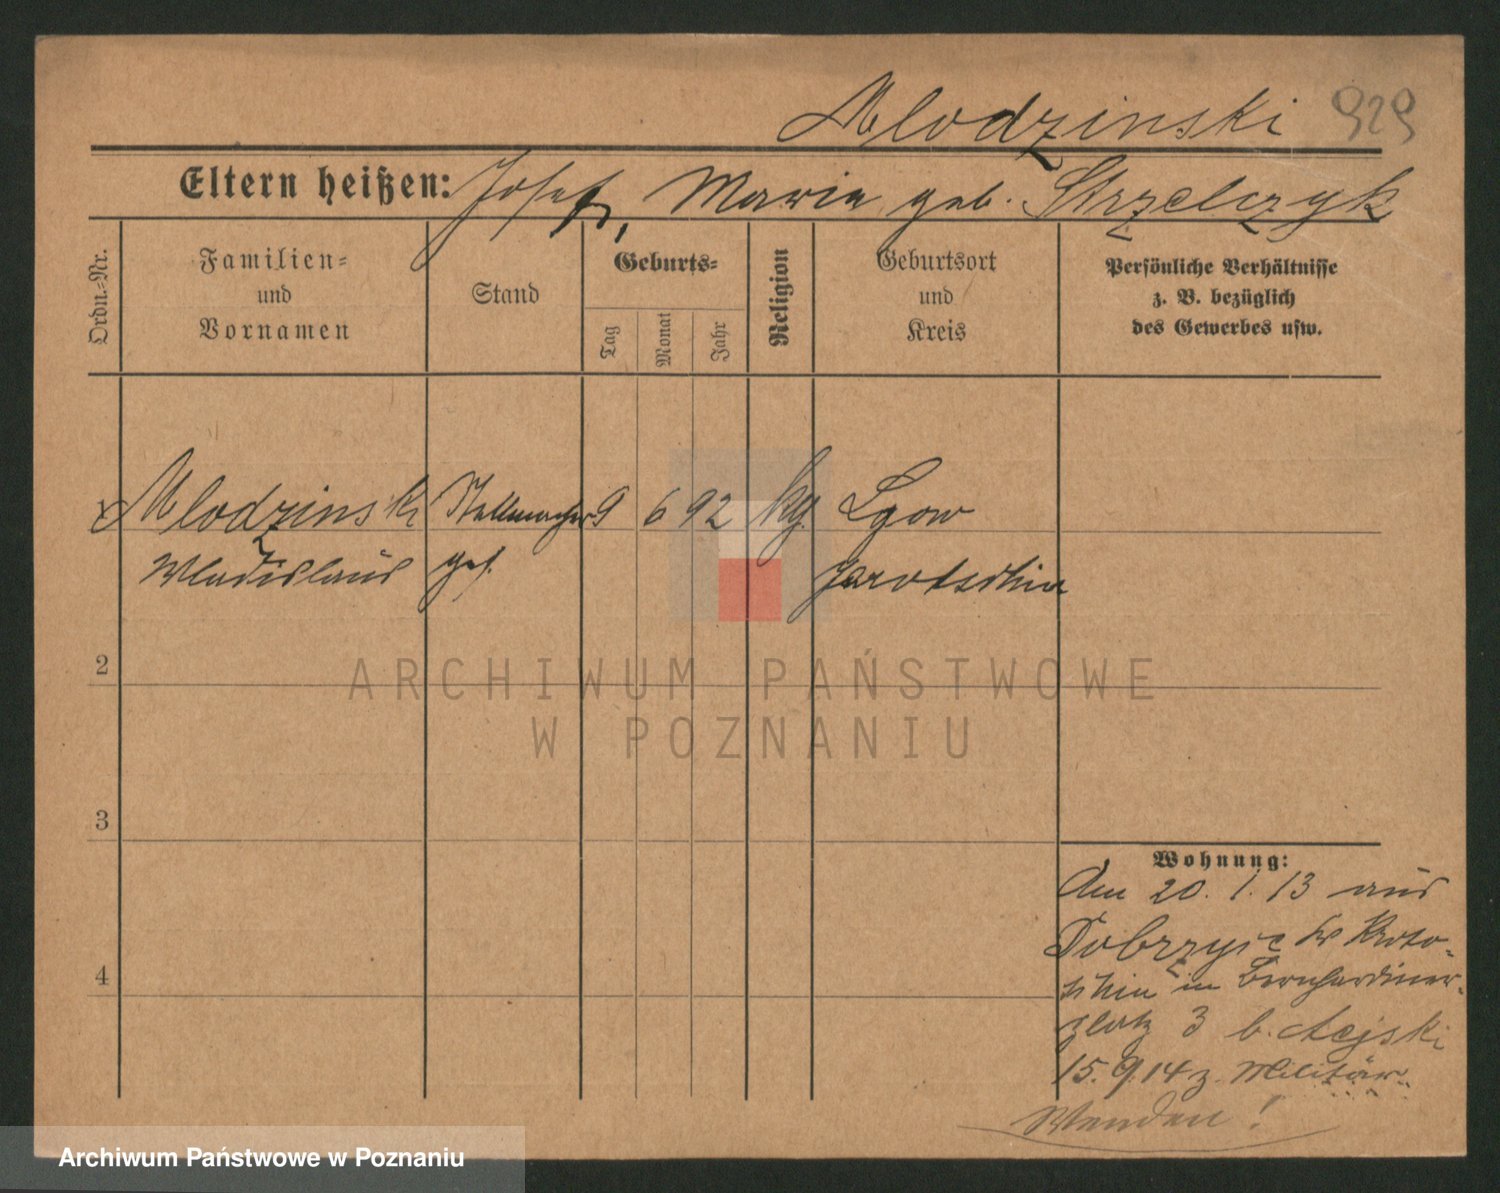 Mlodzinski 929
Eltern heißen: Josef, Maria geb. Strzelczyk
Ordn.=Nr.
Familien=
und
Vornamen
Stand
Geburts=
Tag
Monat
Jahr
Religion
Geburtsort
und
Kreis
Persönliche Verhältnisse
z. B. bezüglich
des Gewerbes usw.
1 Mlodzinski Stellmacher 9 6 92 kg. Lgow
Wladislaus ges. Jarotschin
2
3
4
Wohnung:
Am 20. 1. 13 aus
Dobrzyce Kr Kroto-
schin in Bernhardiner-
platz 3 b.
15. 9. 14 z. Militär
Wenden!
ARCHIWUM PAŃSTWOWE
W POZNANIU
Archiwum Państwowe w Poznaniu